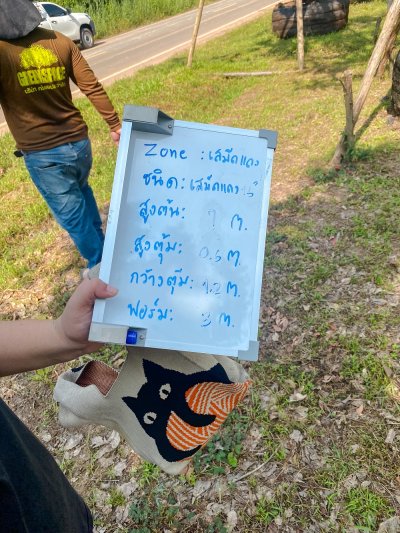 GREENSPACE
Zone : เสม็ดแดง
ชนิด: เสม็ดแดง 6"
สูงต้น: 7 m.
สูงตุ้ม: 0.5 m.
กว้างตุ้ม: 1.2 m.
ฟอร์ม: 3 m.